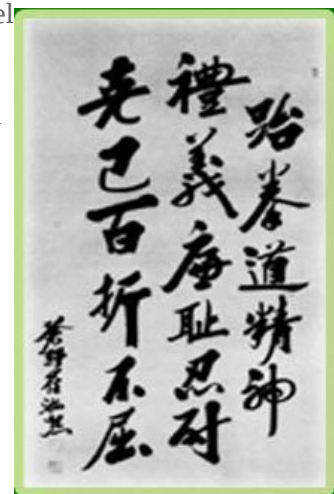 el
跆拳道精神
禮義廉恥忍耐
克己百折不屈
蒼軒崔泓熙